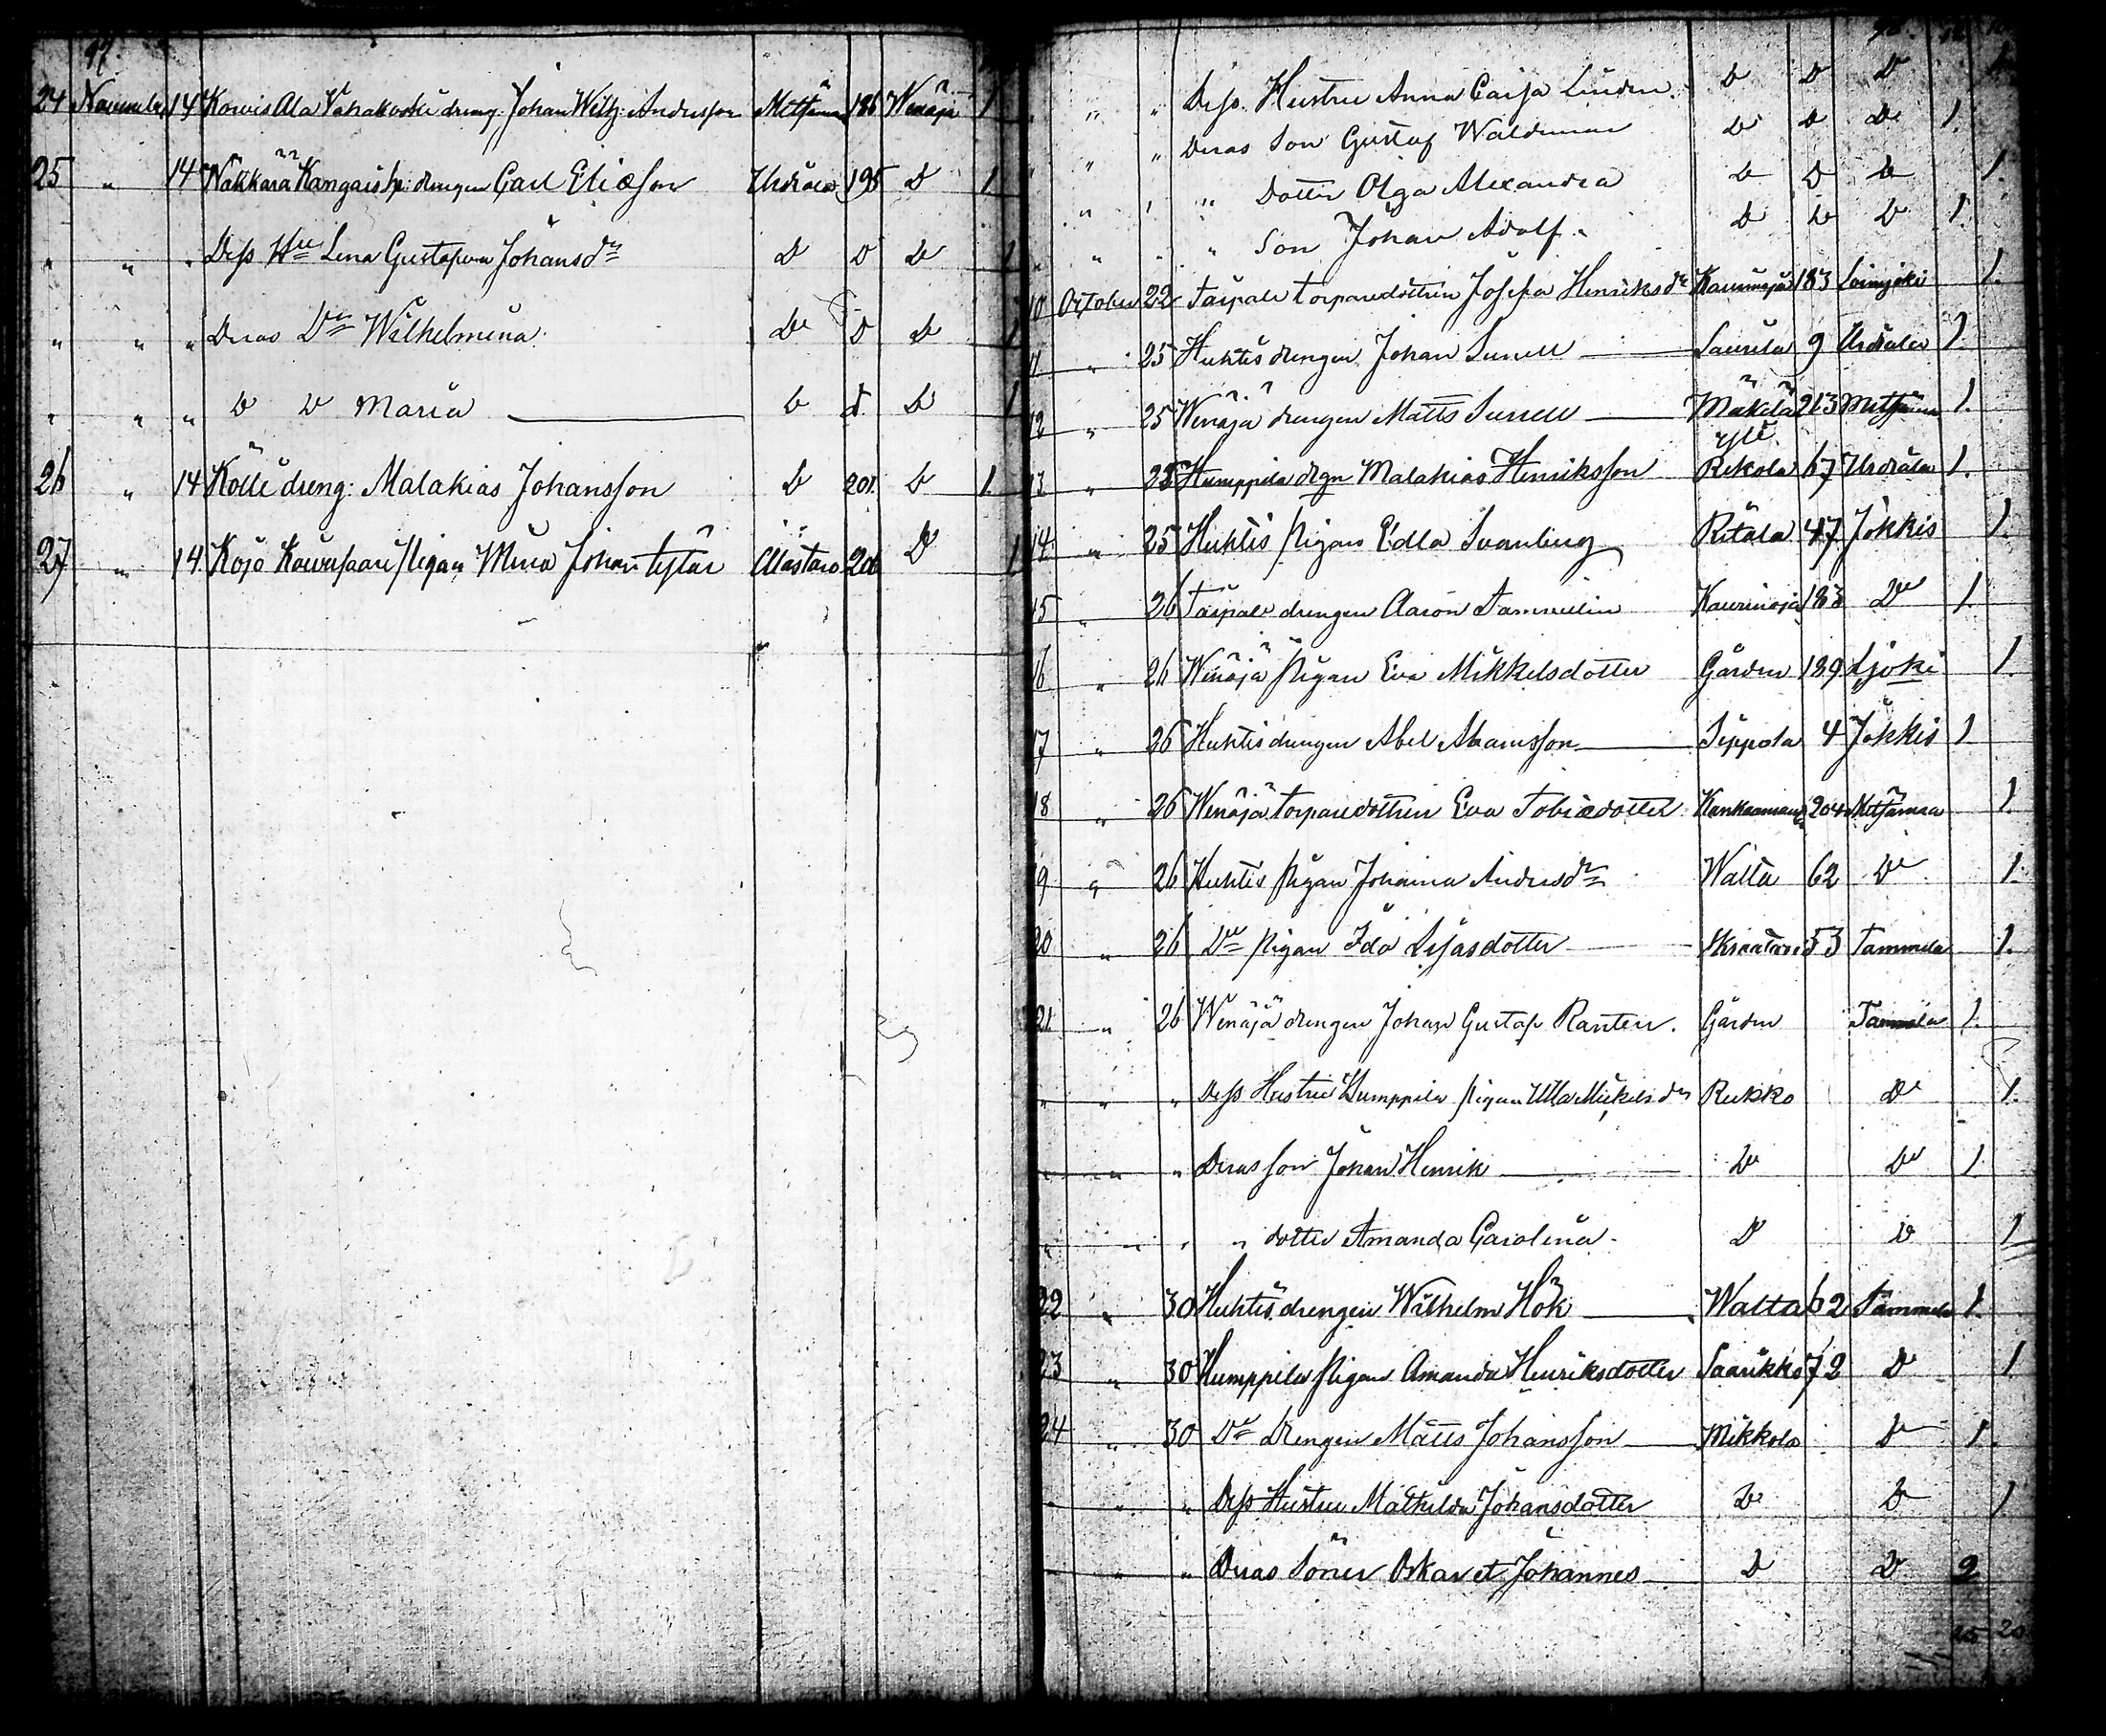 97.
24 November 14 Johan Wilh: Andersson 186 Wenäjä 1
25 " 14 drengen Carl Eliæson Urdiala 195 D 1
" " " Dess Hu Lena Gustafva Johansdr D D D 1
" " " Deras Dr Wilhelmina D D D 1
" " " D D Maria D D D 1
26 " 14 Kölli dreng: Malakias Johansson D 201 D 1
27 " 14 Köjö pigan Mina Johantytär Alastaro D 1
" " Dess Hustru Anna Caisa Linden D D D 1
" " Deras Son Gustaf Waldemar D D D 1.
" " " Dotter Olga Alexandra D D D 1.
" " " Son Johan Adolf D D D 1.
10 October 22 Taipale torparedottren Josefa Henriksdr 183 Loimijoki 1.
11 " 25 Huhtis drengen Johan Saurila 9 Urdiala 1.
12 " 25 Wenäjä drengen Matts Mäkilä 213 1.
13 " 25 Humppila drgn Malakias Henriksson Rekola 67 Urdiala 1.
14 " 25 Huhtis pigan Edla Svanberg Ritala 47 Jokkis 1.
15 " 26 Taipale drengen Aaron Tammelin Kaurinoja 183 D 1.
16 " 26 Wenäjä pigan Eva Mikkelsdotter Gården 189 Ljoki 1.
17 " 26 Huhtis drengen Abel Seppola 4 Jokkis 1
18 " 26 Wenäjä torparedottren Eva Tobiædotter 204 1.
19 " 26 Huhtis pigan Johanna Andersdr Walta 62 D 1.
20 " 26 De pigan Ida 53 Tammela 1.
21 " 26 Wenäjä drengen Johan Gustaf Ranten. Gården Tammela 1.
" " " Dess Hustru Humppila pigan Ulla Mickelsdr Rukko D 1.
" " " Deras son Johan Henrik D D 1
" " " " dotter Amanda Carolina D D 1
22 " 30 Huhtis drengen Wilhelm Hök Walta 62 Tammela 1.
23 " 30 Humppila pigan Amanda Henriksdotter Saarikko 72 D 1
24 " 30 De Drengen Matts Johansson Mikkola D 1.
" " " Dess Hustru Mathilda Johansdotter D D 1
" " " Deras Söner Oskar et Johannes D D 2
15 20